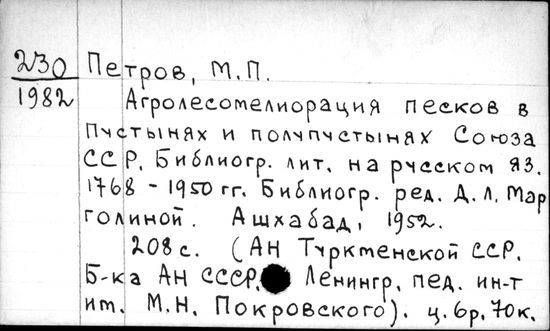 230 Петров, М.П.
1982 Агролесомелиорация песков в
пустынях и полупустынях Союза
ССР. Библиогр. лит. на русском яз.
1768-1950 гг. Библиогр. ред. Д.Л. Мар
голиной. Ашхабад, 1952.
208 с. (АН Туркменской ССР.
Б-ка АН СССР. Ленингр. пед. ин-т
им. М.Н. Покровского). ц. 6р. 70к.